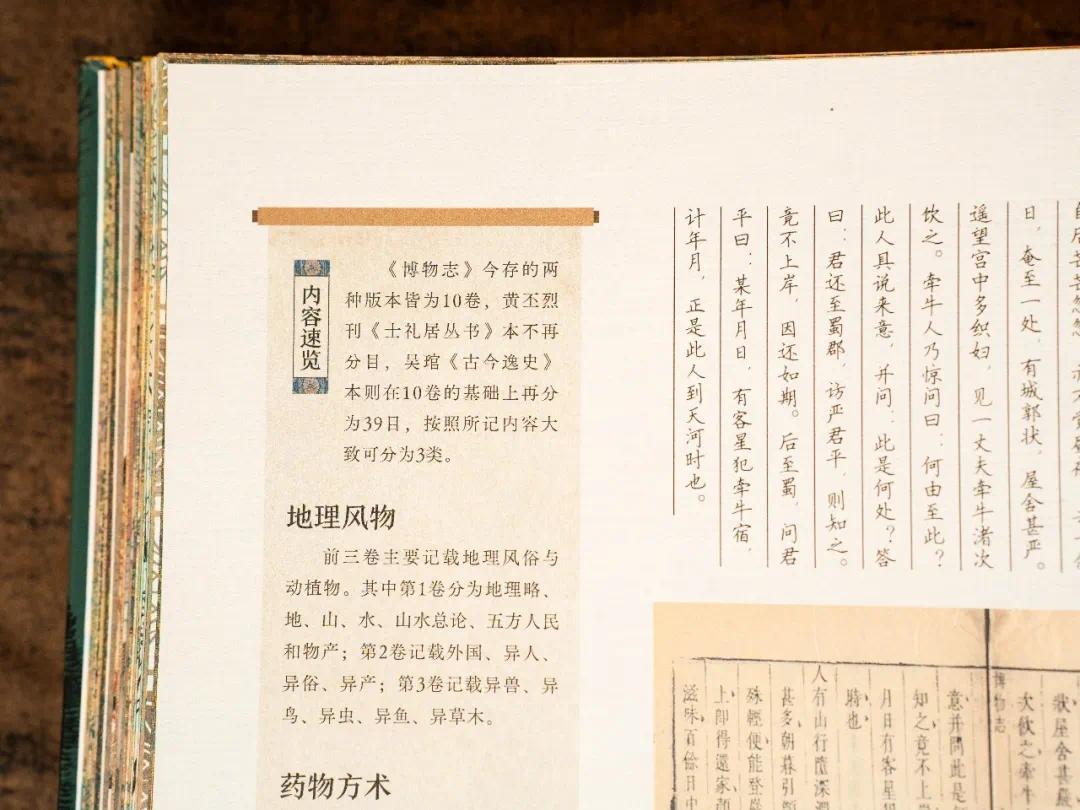 内容速览
《博物志》今存的两
种版本皆为10卷，黄丕烈
刊《士礼居丛书》本不再
分目，吴琯《古今逸史》
本则在10卷的基础上再分
为39日，按照所记内容大
致可分为3类。
地理风物
前三卷主要记载地理风俗与
动植物。其中第1卷分为地理略、
地、山、水、山水总论、五方人民
和物产；第2卷记载外国、异人、
异俗、异产；第3卷记载异兽、异
鸟、异虫、异鱼、异草木。
药物方术
日，奄至一处，有城郭状，屋舍甚严。
遥望宫中多织妇，见一丈夫牵牛渚次
饮之。牵牛人乃惊问曰：何由至此？
此人具说来意，并问：此是何处？答
曰：君还至蜀郡，访严君平，则知之。
竟不上岸，因还如期。后至蜀，问君
平曰：某年月日，有客星犯牵牛宿，
计年月，正是此人到天河时也。
狀屋舍甚
次飲之牽牛
博物志
意并問此是
知之竟不上
月日有客星
時也
人有山行墮深澗
甚多朝暮引頸
殊輕便能登
上即得還家顏
滋味百餘日中